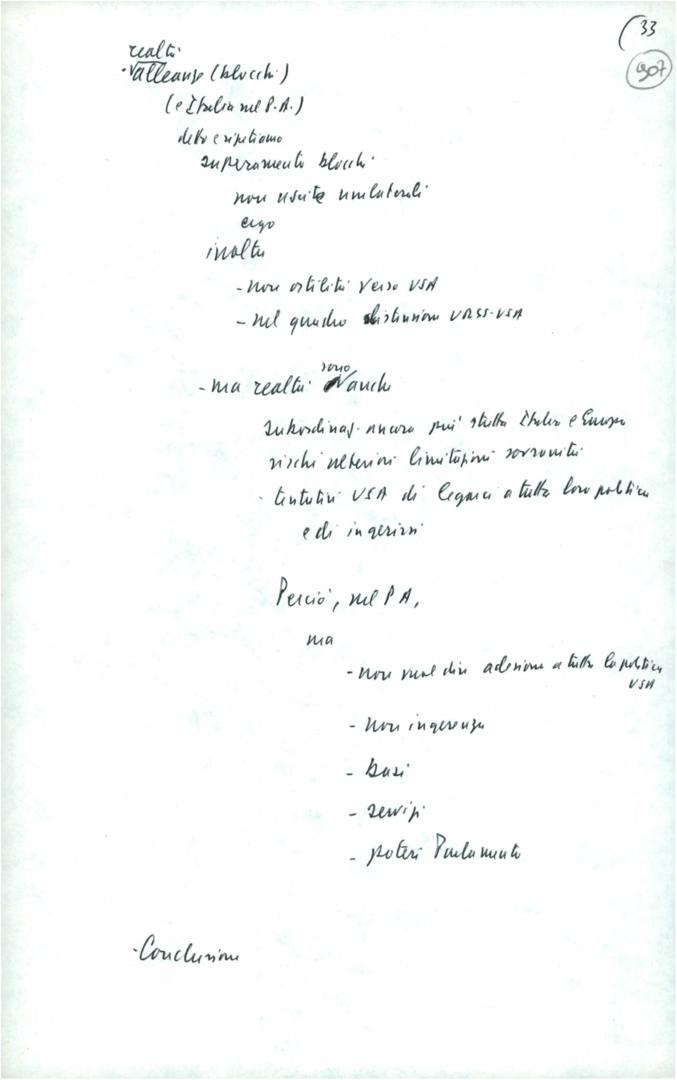 (33
907
realtà
- alleanze (blocchi)
(e Italia nel P.A.)
detto e ripetiamo
superamento blocchi
non uscite unilaterali
ergo
inoltre
- non ostilità verso USA
- nel quadro distensione URSS-USA
sono
- ma realtà anche
subordinaz. ancora più stretta Italia e Europa
rischi ulteriori limitazioni sovranità
- tentativi USA di legarci a tutta loro politica
e di ingerirsi
Perciò, nel P A,
ma
- non vuol dire adesione a tutta la politica
USA
- non ingerenza
- basi
- servizi
- poteri Parlamento
- Conclusione